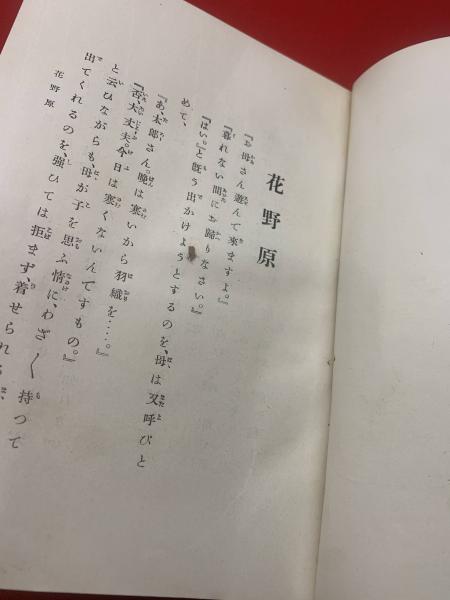 花野原
『お母さん遊んで來ますよ。』
『暮れない間にお歸りなさい。』
『はい。』と既う出かけようとするのを、母は又呼びと
めて、
『あ、太郎さん。晩は寒いから羽織を‥‥。』
『否大丈夫。今日は寒くないんですもの。』
と云ひながらも、母が子を思ふ情に、わざ〳〵持つて
出てくれるのを、強ひては拒まず、着せられる
花野原